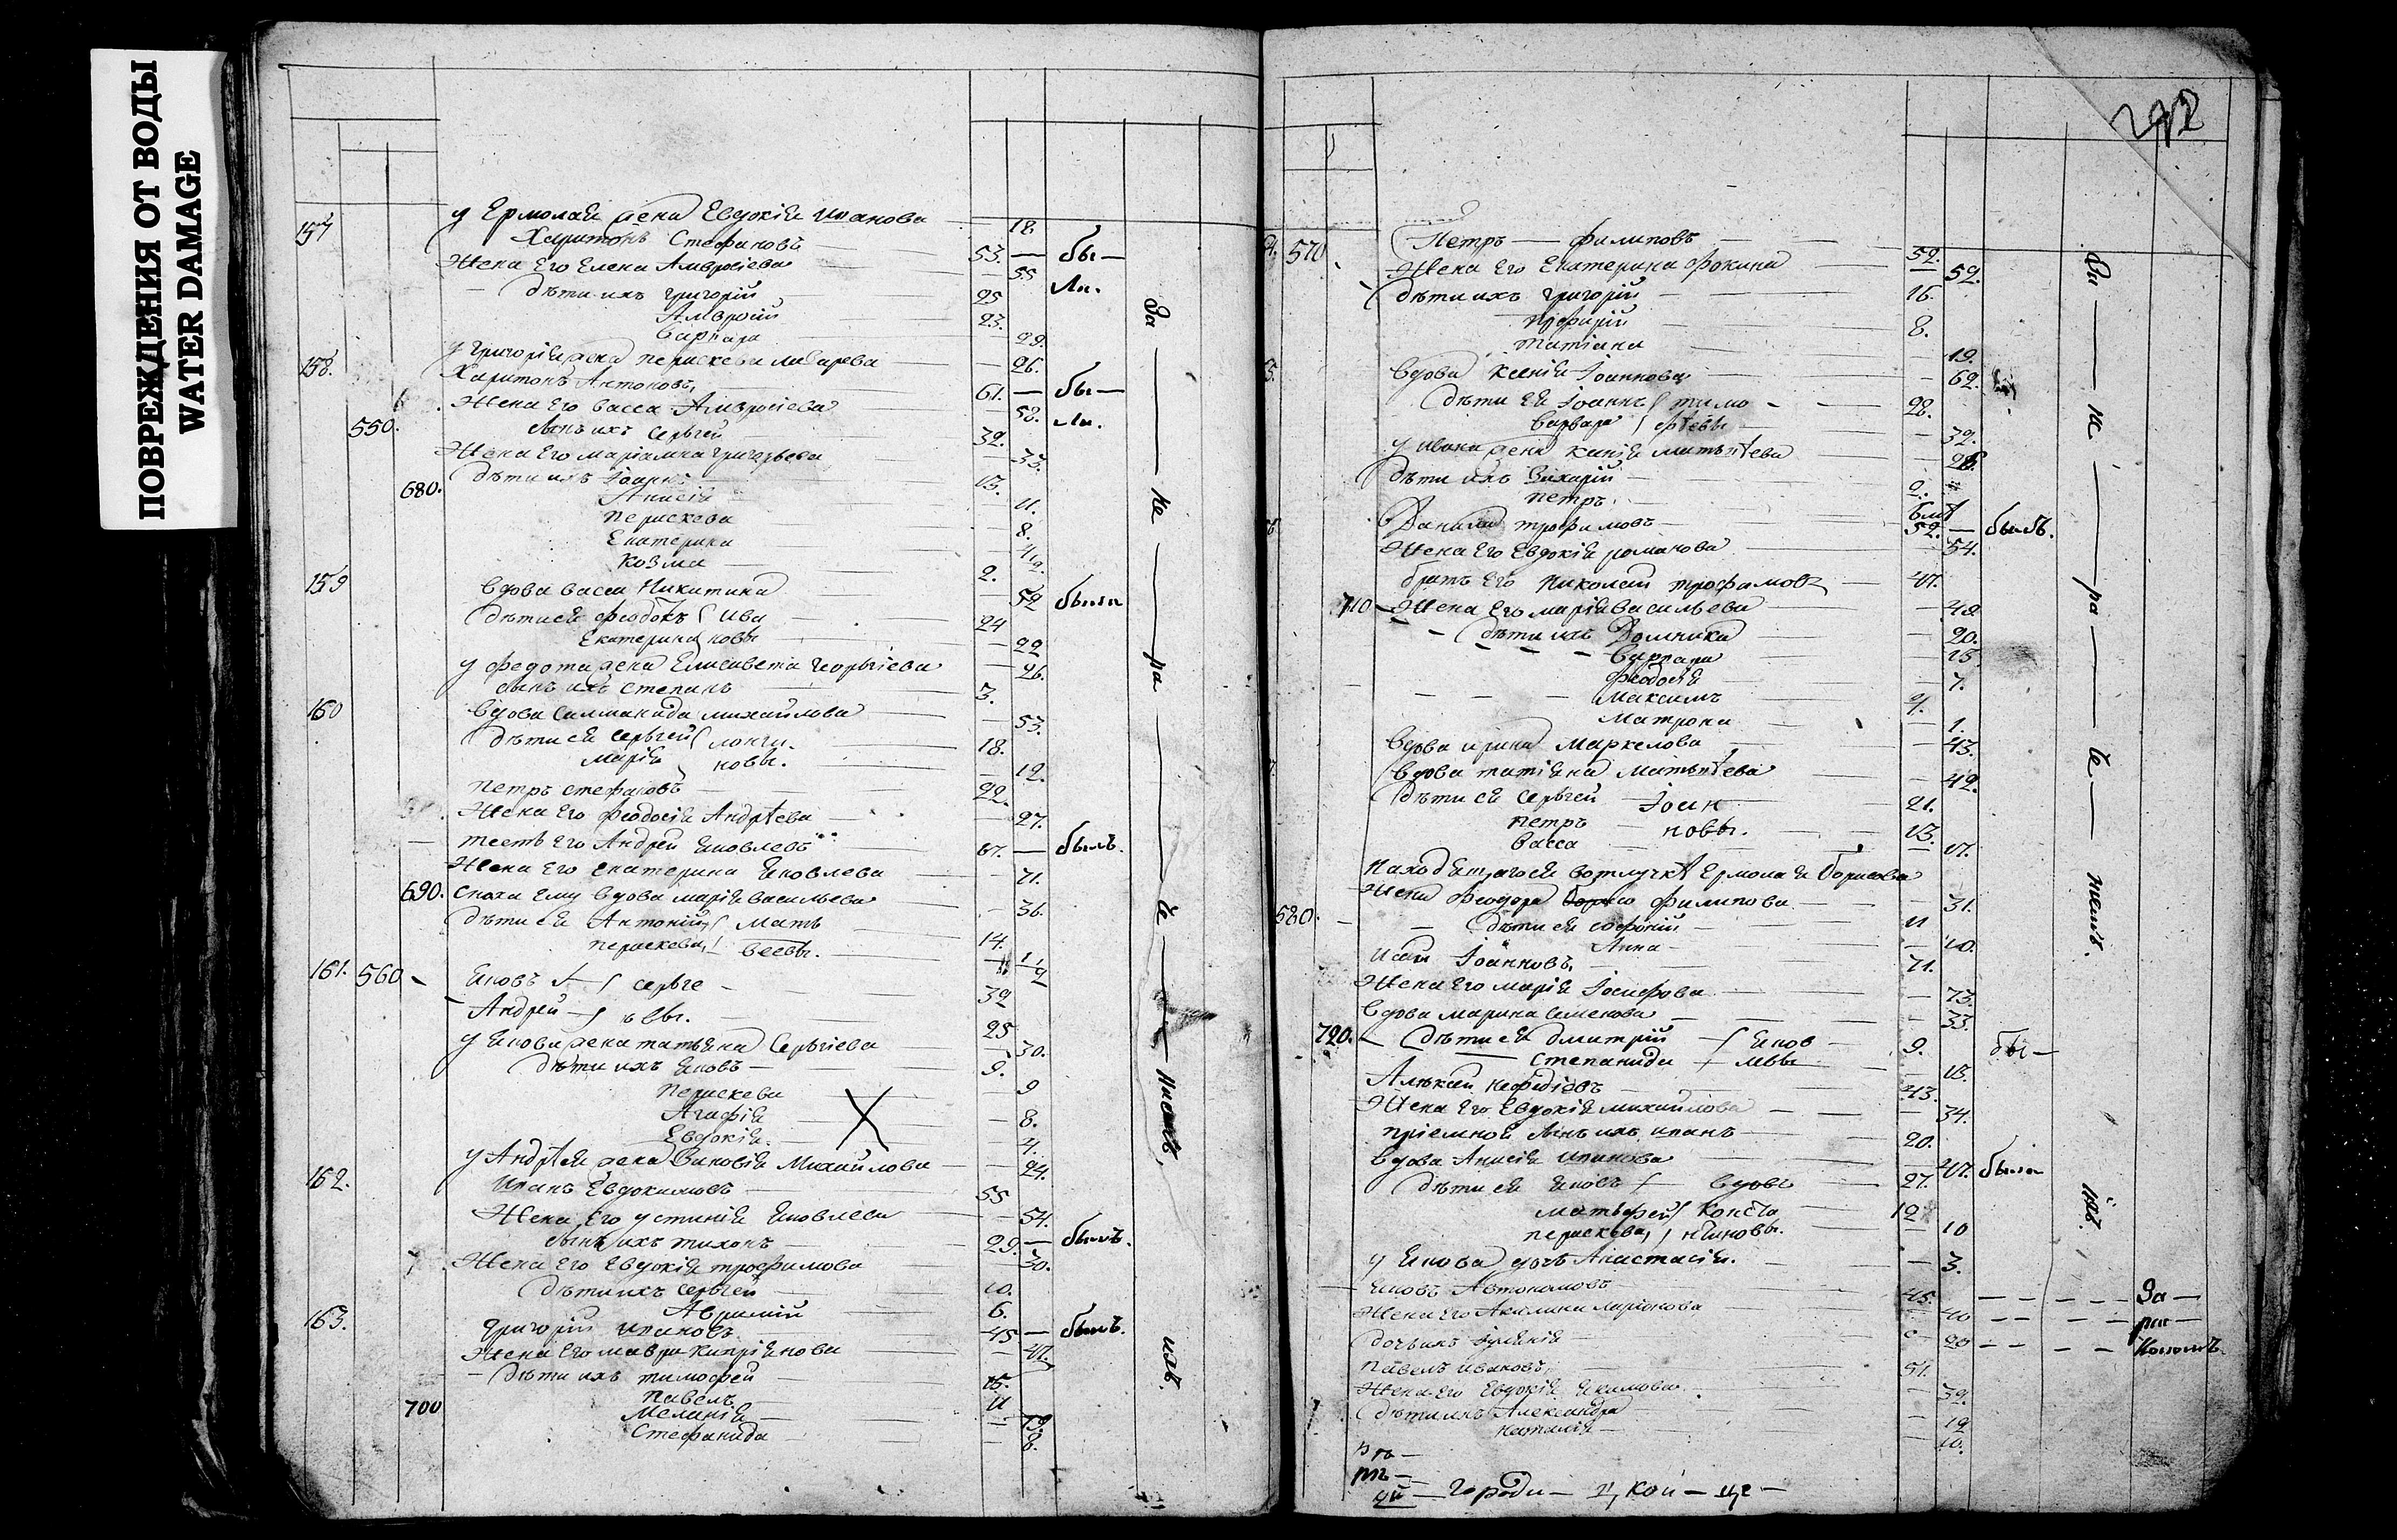 ПОВРЕЖДЕНИЯ ОТ ВОДЫ
WATER DAMAGE
у Ермолая жена Евдокія Иванова — 18.
157 Харитонъ Стефановъ 53. — бы —
Жена Его Елена Амвросіева — 55 ли.
Дѣти ихъ Григорій 25
Амвросій 23.
Варвара — 29.
у Григорія жена Параскева — 26.
158. Харитонъ Антоновъ 61. — бы —
Жена Его Васса Амвросіева — 58. ли.
550. сынъ ихъ Сергѣй 32.
Жена Его Маріамна Григорьева — 33.
680. Дѣти ихъ Іоаннъ 13.
Анисія — 11.
Параскева — 8.
Екатерина
Козма 2.
159 Вдова Васса Никитина — 52 была
Дѣти ея Феодотъ Ива 24
Екатерина новы — 22
у Федота жена Елисавета Георгіева — 26.
сынъ ихъ Степанъ 3.
160 Вдова Саламанида Михайлова — 53.
Дѣти ея Сергѣй Лонги 18.
Марія новы. — 12.
Петръ Стефановъ 22.
Жена Его Феодосія Андрѣева — 27.
тесть Его Андрей Яковлевъ 67. — былъ.
Жена Его Екатерина Яковлева — 71.
690. сноха Ему вдова Марія Васильева — 36.
Дѣти ея Антоній Матѳ 14.
Параскева веевы.
161. 560 Яковъ Сергѣ 39
Андрей евы. 25
у Якова жена Татьяна Сергіева — 30.
Дѣти ихъ Яковъ 9.
Параскева — 9
Агафія — 8.
Евдокія — 4.
у Андрѣя жена Зиновія Михайлова — 24.
162. Иванъ Евдокимовъ 55
Жена Его Устинія Яковлева — 54.
сынъ ихъ Тихонъ 29. — былъ.
Жена Его Евдокія Трофимова — 30.
Дѣти ихъ Сергѣй 10.
Аврамій 6.
163. Григорій Ивановъ 45 — былъ.
Жена Его Мавра Кипріянова — 47.
Дѣти ихъ Тимофей 15.
Павелъ 11
700 Меланія — 19.
Стефанида — 8.
За — не — ра — че — ніемъ ихъ.
292
570 Петръ — Филиповъ 52.
Жена Его Екатерина Фокина — 52.
Дѣти ихъ Григорій 16.
Порфирій 8.
Татіана — 19.
Вдова Ксенія Іоаннова — 62.
Дѣти ея Іоаннъ Тимо 28.
Варвара фѣевы — 32.
у Ивана жена Ксенія Матвѣева — 26
Дѣти ихъ Захарій 2.
Петръ
Данилъ Трофимовъ 52. — былъ.
Жена Его Евдокія Романова — 54.
братъ Его Николай Трофимовъ 47.
710 Жена Его Марія Васильева — 48
Дѣти ихъ Домника — 20.
Варвара — 13
Феодосія — 7.
Максимъ 9.
Матрона — 1.
Вдова Ирина Маркелова — 43.
Вдова Татіяна Матвѣева — 42.
Дѣти ея Сергѣй Іоан 21.
Петръ новы. 13.
Васса — 17.
Находящагося въ отлучкѣ Ермолая Борисова
Жена Феодора Филипова — 31.
580. Дѣти ея Софроній 11
Анна — 10.
Исаія Іоанновъ 71.
Жена Его Марія Іосифова — 73.
Вдова Марина Семенова — 33.
720. Дѣти ея Дмитрій Яков 9. бы —
Степанида левы — 13.
Алексѣй Нефедіевъ 43.
Жена Его Евдокія Михайлова — 34.
пріемной сынъ ихъ Иванъ 20.
Вдова Анисія Иванова — 47. была
Дѣти ея Яковъ вдовъ 27.
Матвѣей Конста 12
Параскева нтиновы. — 10
у Якова дочь Анастасія. — 3.
Яковъ Автономовъ 45. — За —
Жена Его Акилина Ларіонова — 40 — ра —
Дочь ихъ — 20
Павелъ Ивановъ 51.
Жена Его Евдокія Якимова — 39.
Дѣти ихъ Александра — 12
Наталія — 10.
За — не — ра — че — ніемъ. ихъ.
городи — ц, кой — це —